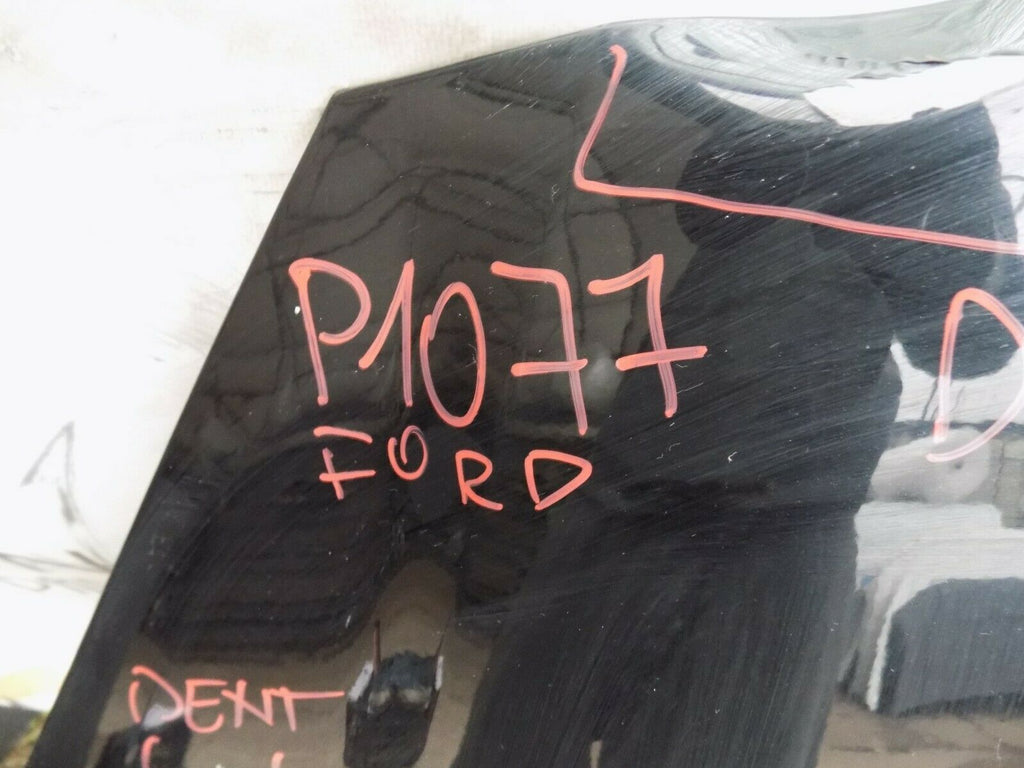 P1077
FORD
D
DENT